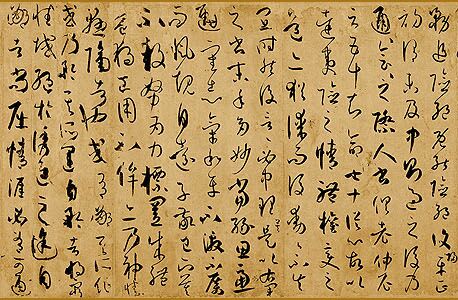 務追險絕既能險絕復歸平正
初謂未及中則過之後乃
通會通會之際人書俱老仲尼
云五十知命七十從心故以
達夷險之情體權變之
道亦猶謀而後動動不失
宜時然後言言必中理矣是以右軍
之書末年多妙當緣思慮
通審志氣和平不激不厲
而風規自遠子敬已下莫
不鼓努為力標置成體
豈獨工用不侔亦乃神情
懸隔者也或有鄙其所作
或乃矜其所運自矜者將窮
性域絕於誘進之途自
鄙者尚屈情涯必有可通